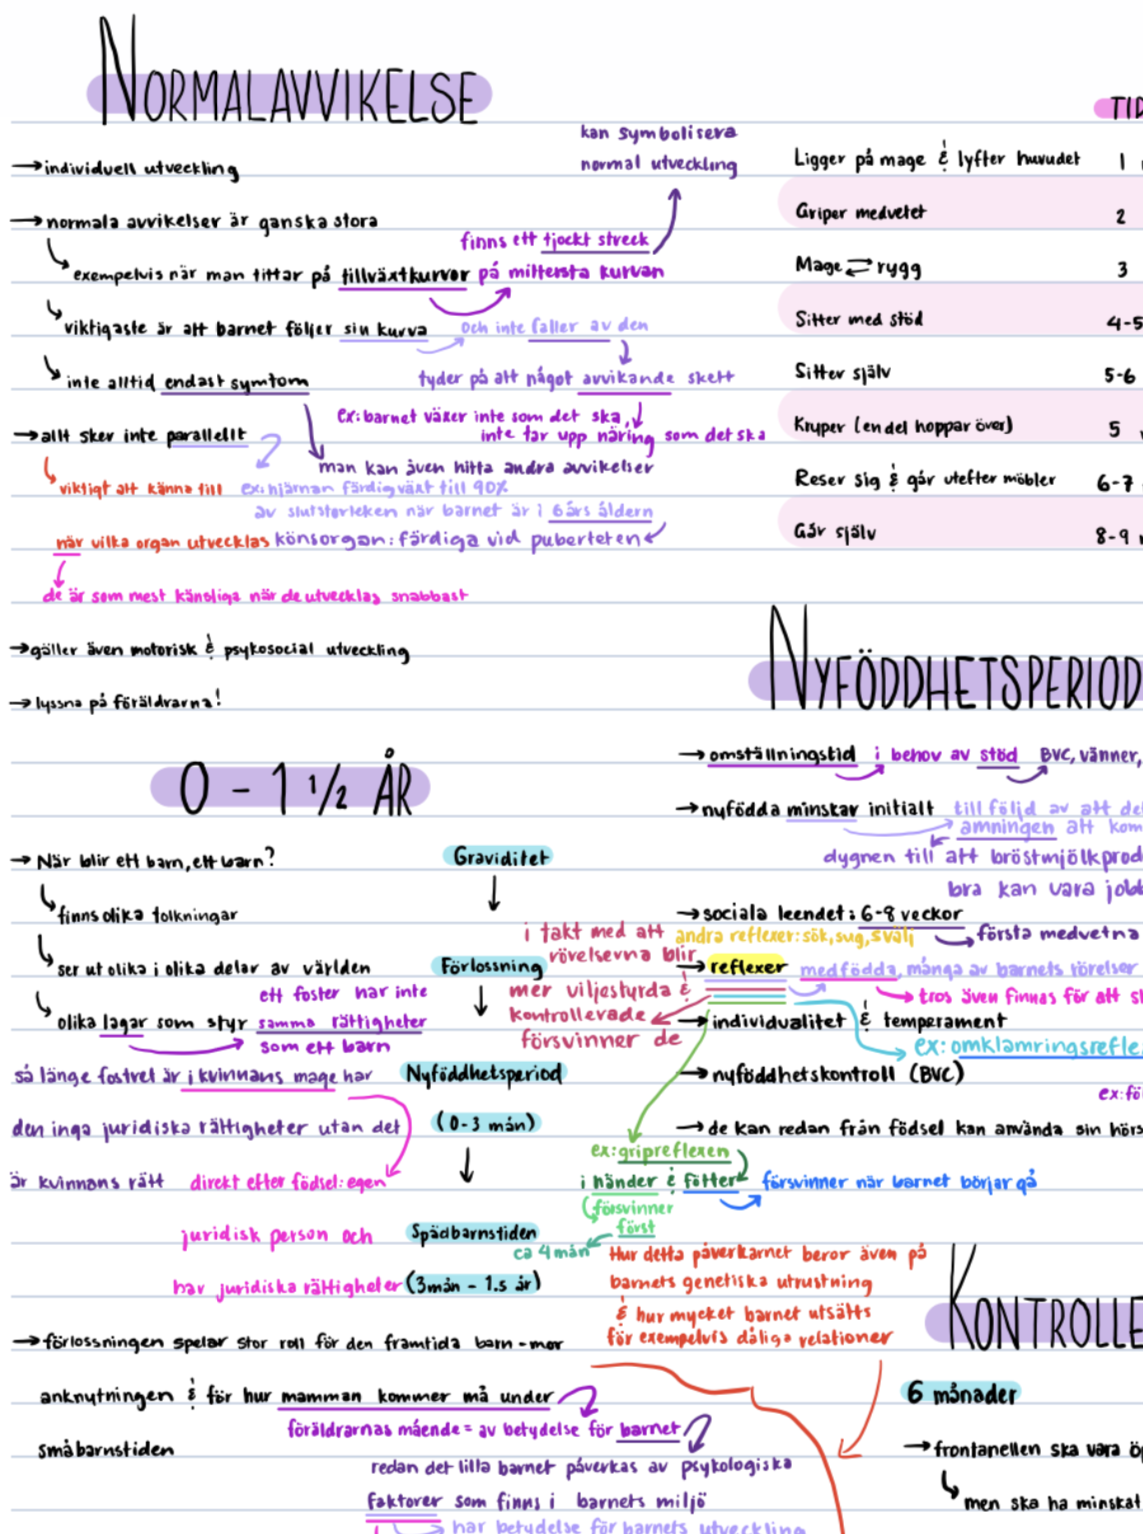 NORMALAVVIKELSE
→ individuell utveckling
→ normala avvikelser är ganska stora
exempelvis när man tittar på tillväxtkurvor på mittersta kurvan
finns ett tjockt streck
kan symbolisera
normal utveckling
viktigaste är att barnet följer sin kurva och inte faller av den
tyder på att något avvikande skett
ex: barnet växer inte som det ska,
inte tar upp näring som det ska
inte alltid endast symtom
man kan även hitta andra avvikelser
→ allt sker inte parallellt
ex: hjärnan färdigväxt till 90%
av slutstorleken när barnet är i 6års åldern
könsorgan: färdiga vid puberteten
viktigt att känna till
när vilka organ utvecklas
de är som mest känsliga när de utvecklas snabbast
→ gäller även motorisk & psykosocial utveckling
→ lyssna på föräldrarna!
TID
Ligger på mage & lyfter huvudet 1
Griper medvetet 2
Mage ⇄ rygg 3
Sitter med stöd 4-5
Sitter själv 5-6
Kryper (en del hoppar över) 5
Reser sig & går utefter möbler 6-7
Går själv 8-9
0 - 1 1/2 ÅR
→ När blir ett barn, ett barn?
finns olika tolkningar
ser ut olika i olika delar av världen
olika lagar som styr samma rättigheter
ett foster har inte
som ett barn
så länge fostret är i kvinnans mage har
den inga juridiska rättigheter utan det
är kvinnans rätt
direkt efter födsel: egen
juridisk person och
har juridiska rättigheter
Graviditet
Förlossning
Nyföddhetsperiod
(0-3 mån)
Spädbarnstiden
(3mån - 1.5 år)
→ förlossningen spelar stor roll för den framtida barn-mor
anknutningen & för hur mamman kommer må under
småbarnstiden
föräldrarnas mående = av betydelse för barnet
redan det lilla barnet påverkas av psykologiska
faktorer som finns i barnets miljö
har betydelse för barnets utveckling
NYFÖDDHETSPERIOD
→ omställningstid i behov av stöd BVC, vänner,
→ nyfödda minskar initialt till följd av att de
amningen att kom
dygnen till att bröstmjölkprod
bra kan vara jobb
→ sociala leendet: 6-8 veckor
första medvetna
andra reflexer: sök, sug, svälj
→ reflexer medfödda, många av barnets rörelser
tros även finnas för att s
i takt med att
rörelserna blir
mer viljestyrda &
kontrollerade
försvinner de
→ individualitet & temperament
ex: omklamringsrefle
→ nyföddhetskontroll (BVC)
ex: fö
→ de kan redan från födsel kan använda sin hörs
ex: gripreflexen
i händer & fötter försvinner när barnet börjar gå
försvinner
först
ca 4 mån
Hur detta påverkarnet beror även på
barnets genetiska utrustning
& hur mycket barnet utsätts
för exempelvis dåliga relationer
KONTROLLE
6 månader
→ frontanellen ska vara öp
men ska ha minskat